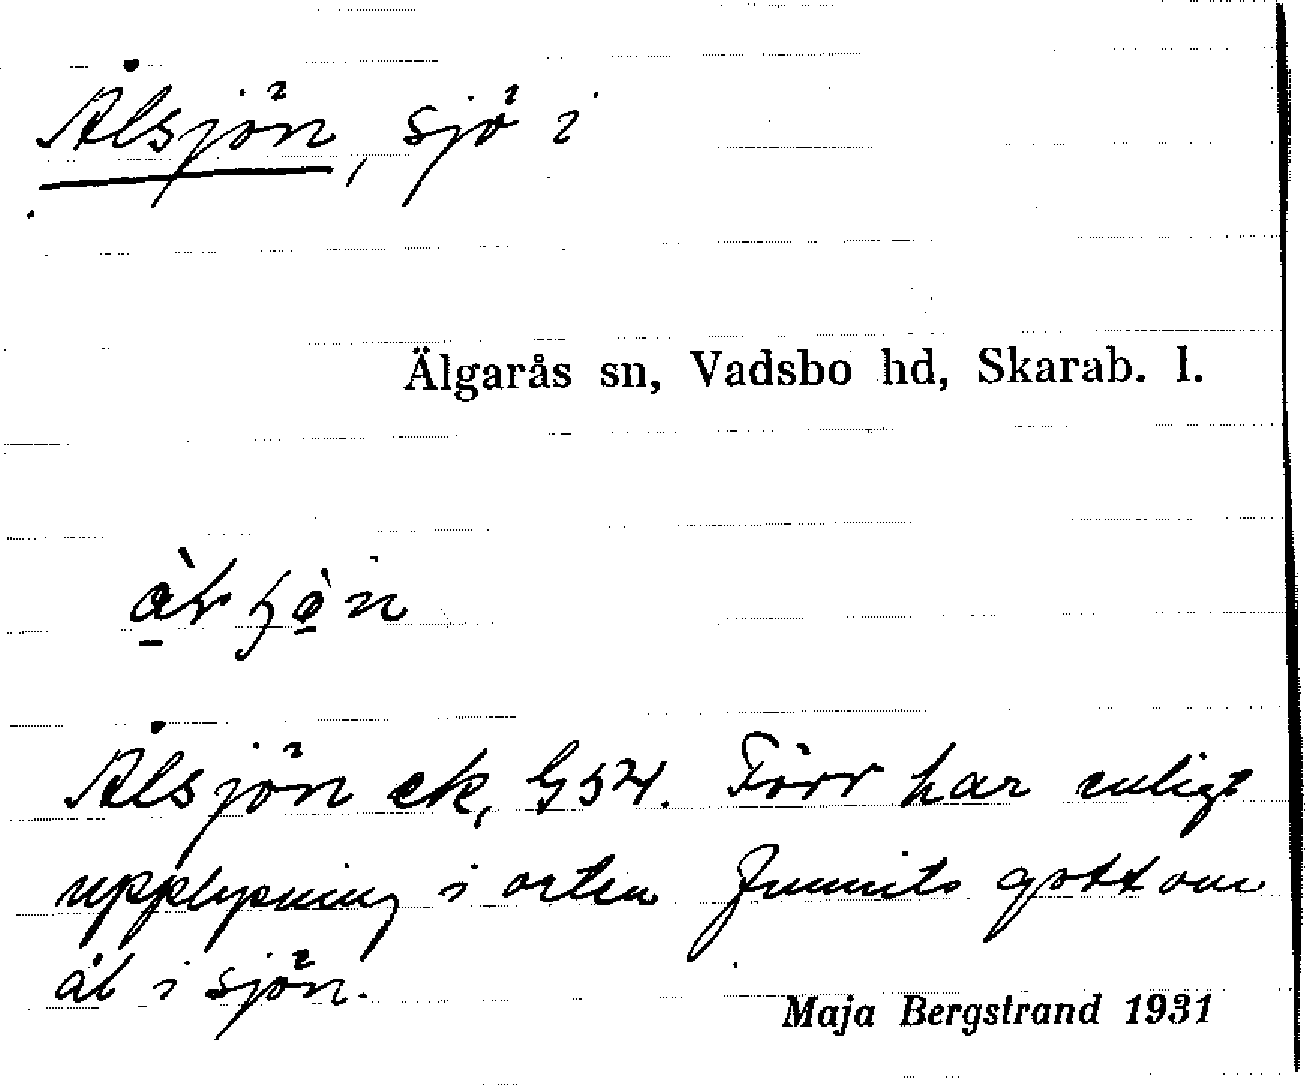 Ålsjön, sjö i
Älgarås sn, Vadsbo hd, Skarab. l.
Ålsjön ek, G 54. Förr har enligt
upplysning i orten funnits gott om
ål i sjön.
Maja Bergstrand 1931